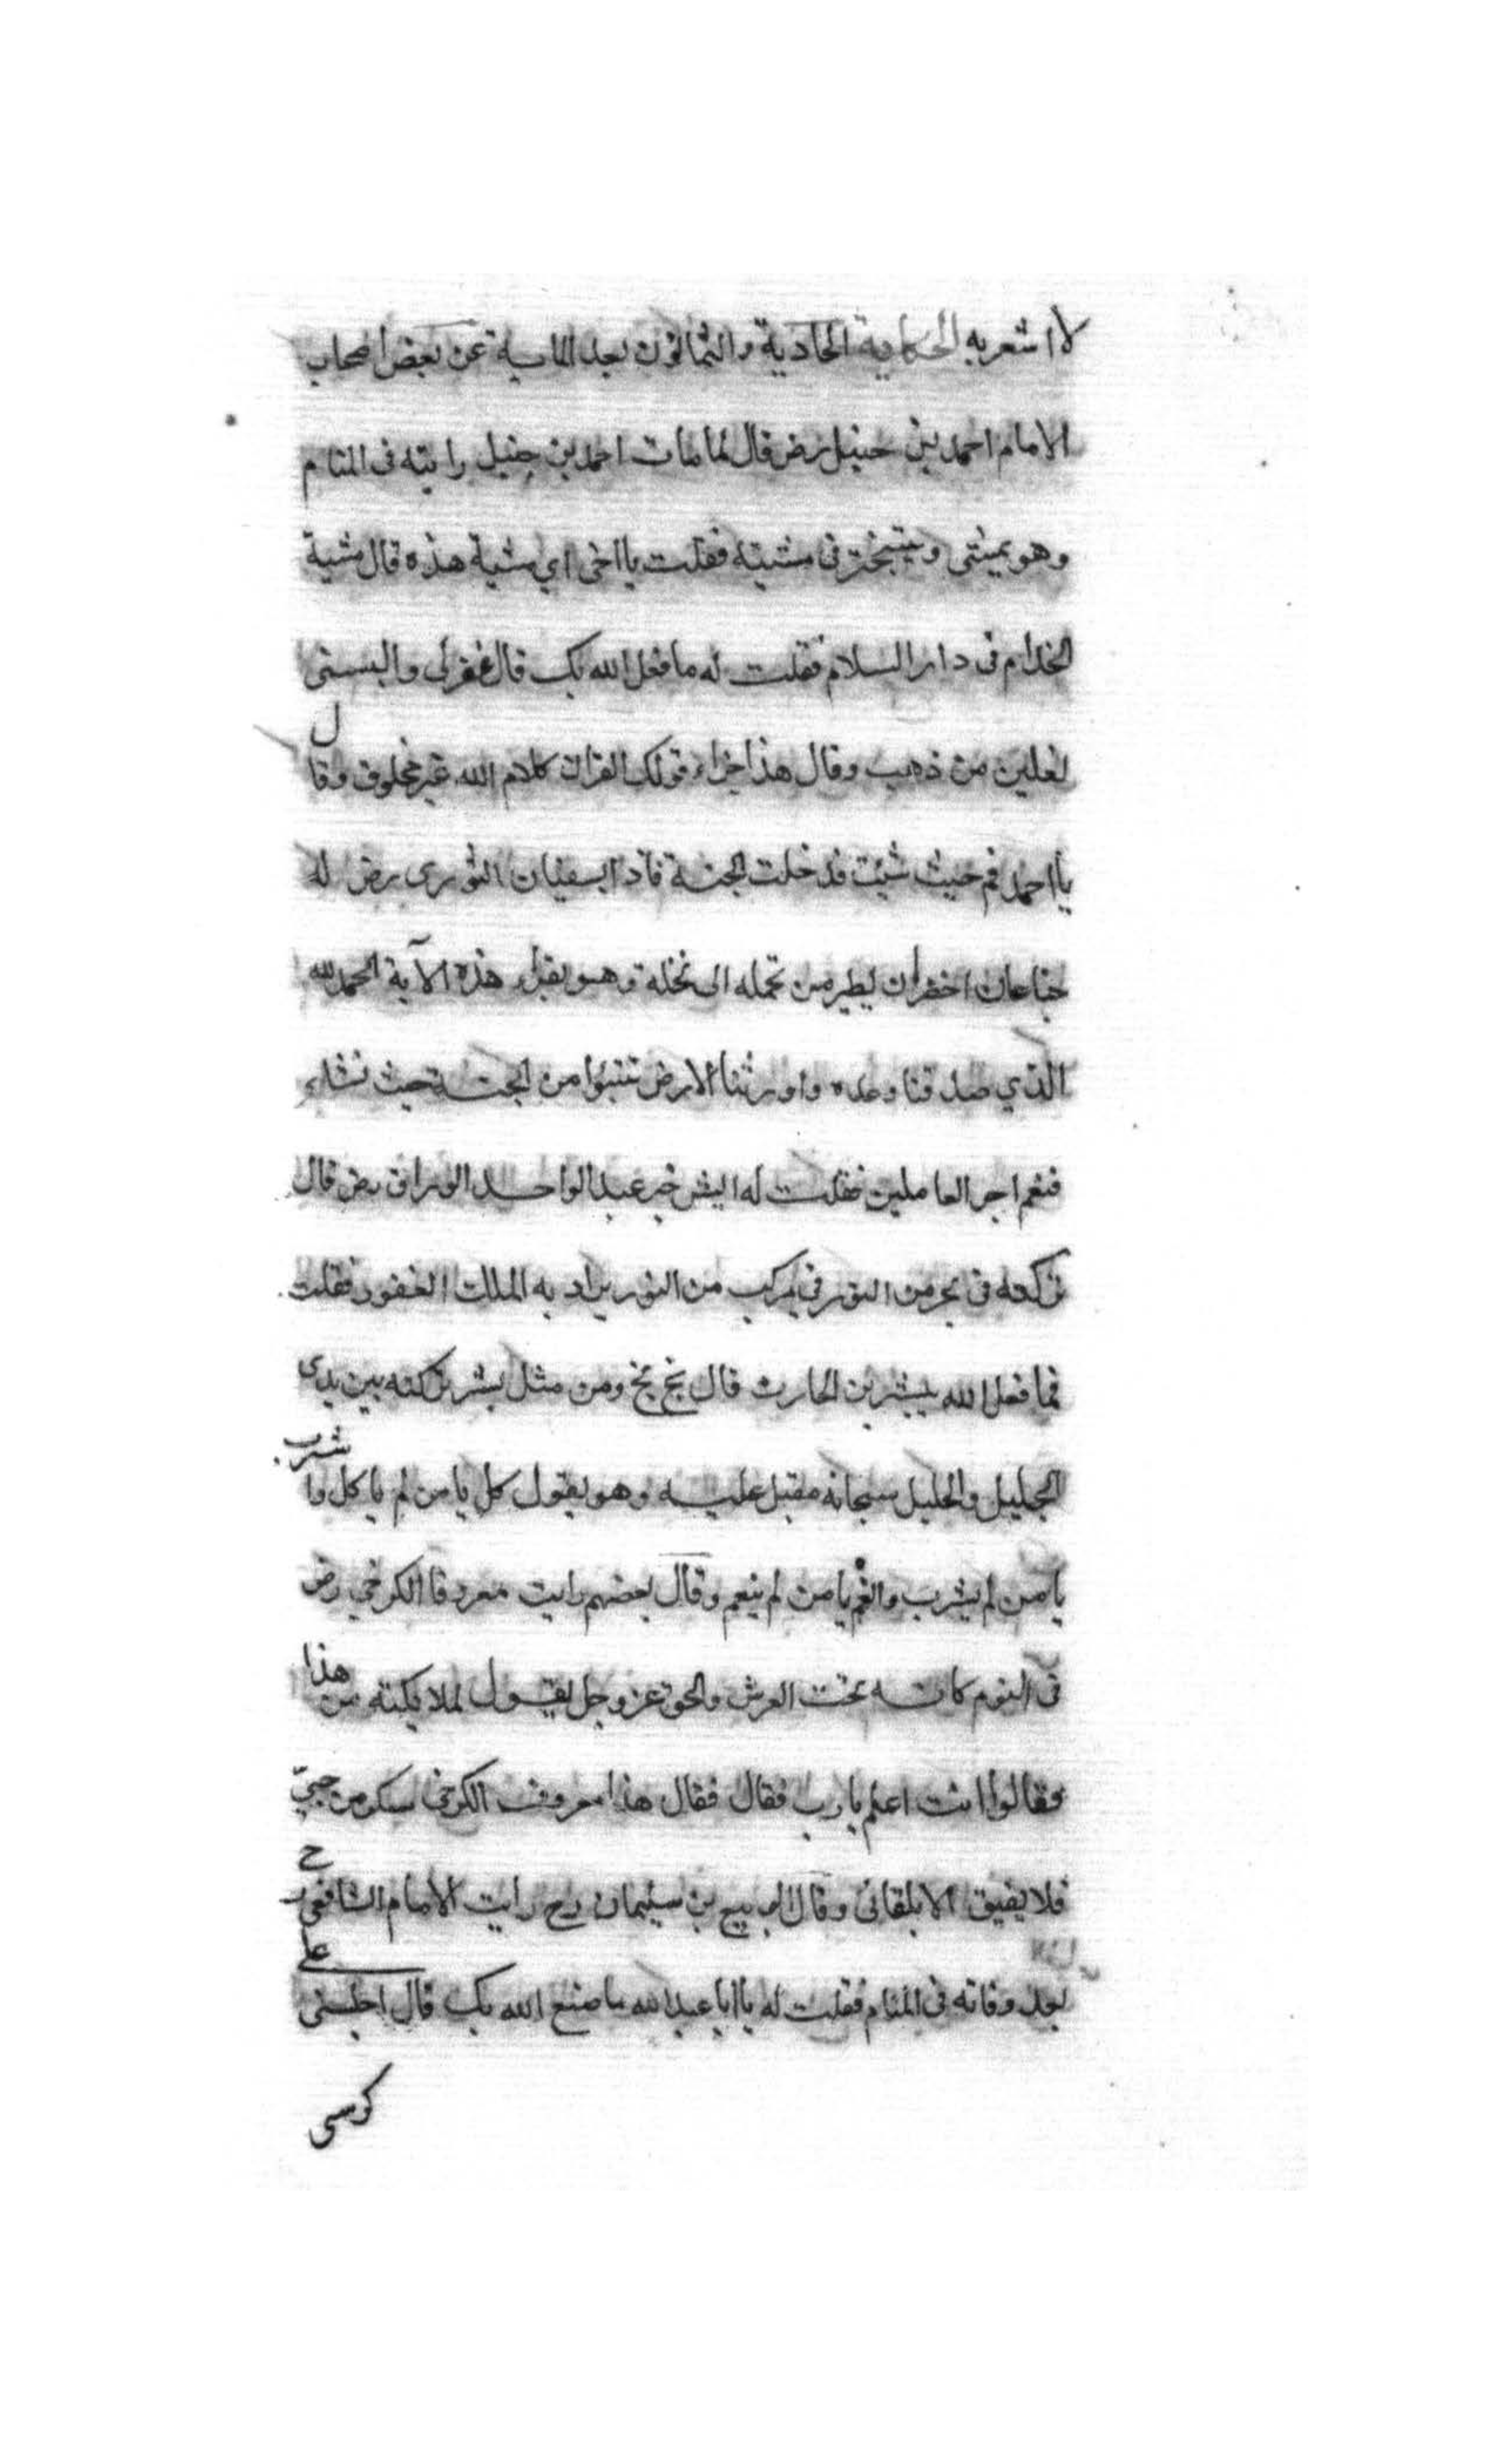 لا اشعر به الحكاية الحادية والثمانون بعد المايية عن بعض اصحاب
الامام احمد بن حنبل رض قال لما مات احمد بن حنبل رايته فى المنام
وهو يمشى ويتبختر فى مشيته فقلت يا اخى اي مشية هذه قال مشية
الخدام فى دار السلام فقلت له ما فعل الله بك قال غفر لى والبسنى
نعلين من ذهب وقال هذا جزاء قولك القران كلام الله غير مخلوق وقال
يا احمد قم حيث شئت فدخلت الجنة فاذا بسفيان الثورى رض له
جناحان اخضران يطير من نخله الى نخلة وهو يقرأ هذه الآية الحمد لله
الذي صدقنا وعده واورثنا الارض نتبوا من الجنة حيث نشاء
فنعم اجر العاملين فقلت له ايش خبر عبد الواحد الوراق رض قال
تركته فى بحر من النور فى مركب من النور يزاد به الملك الغفور فقلت
فما فعل الله ببشر بن الحارث قال بخ بخ ومن مثل بشر تركته بين يدى
الجليل والجليل سبحانه مقبل عليه وهو يقول كل يا من لم ياكل واشرب
يا من لم يشرب وانعم يا من لم ينعم وقال بعضهم رايت معروفا الكرخي رض
فى النوم كانه تحت العرش والحق عز وجل يقول لملايكته من هذا
فقالوا انت اعلم يا رب فقال فقال هذا معروف الكرخى سكر من حبيّ
فلا يفيق الا بلقائى وقال الربيع بن سليمان رح رايت الامام الشافعى رح
بعد وفاته فى المنام فقلت له يا ابا عبد الله ما صنع الله بك قال اجلسنى على
كرسى